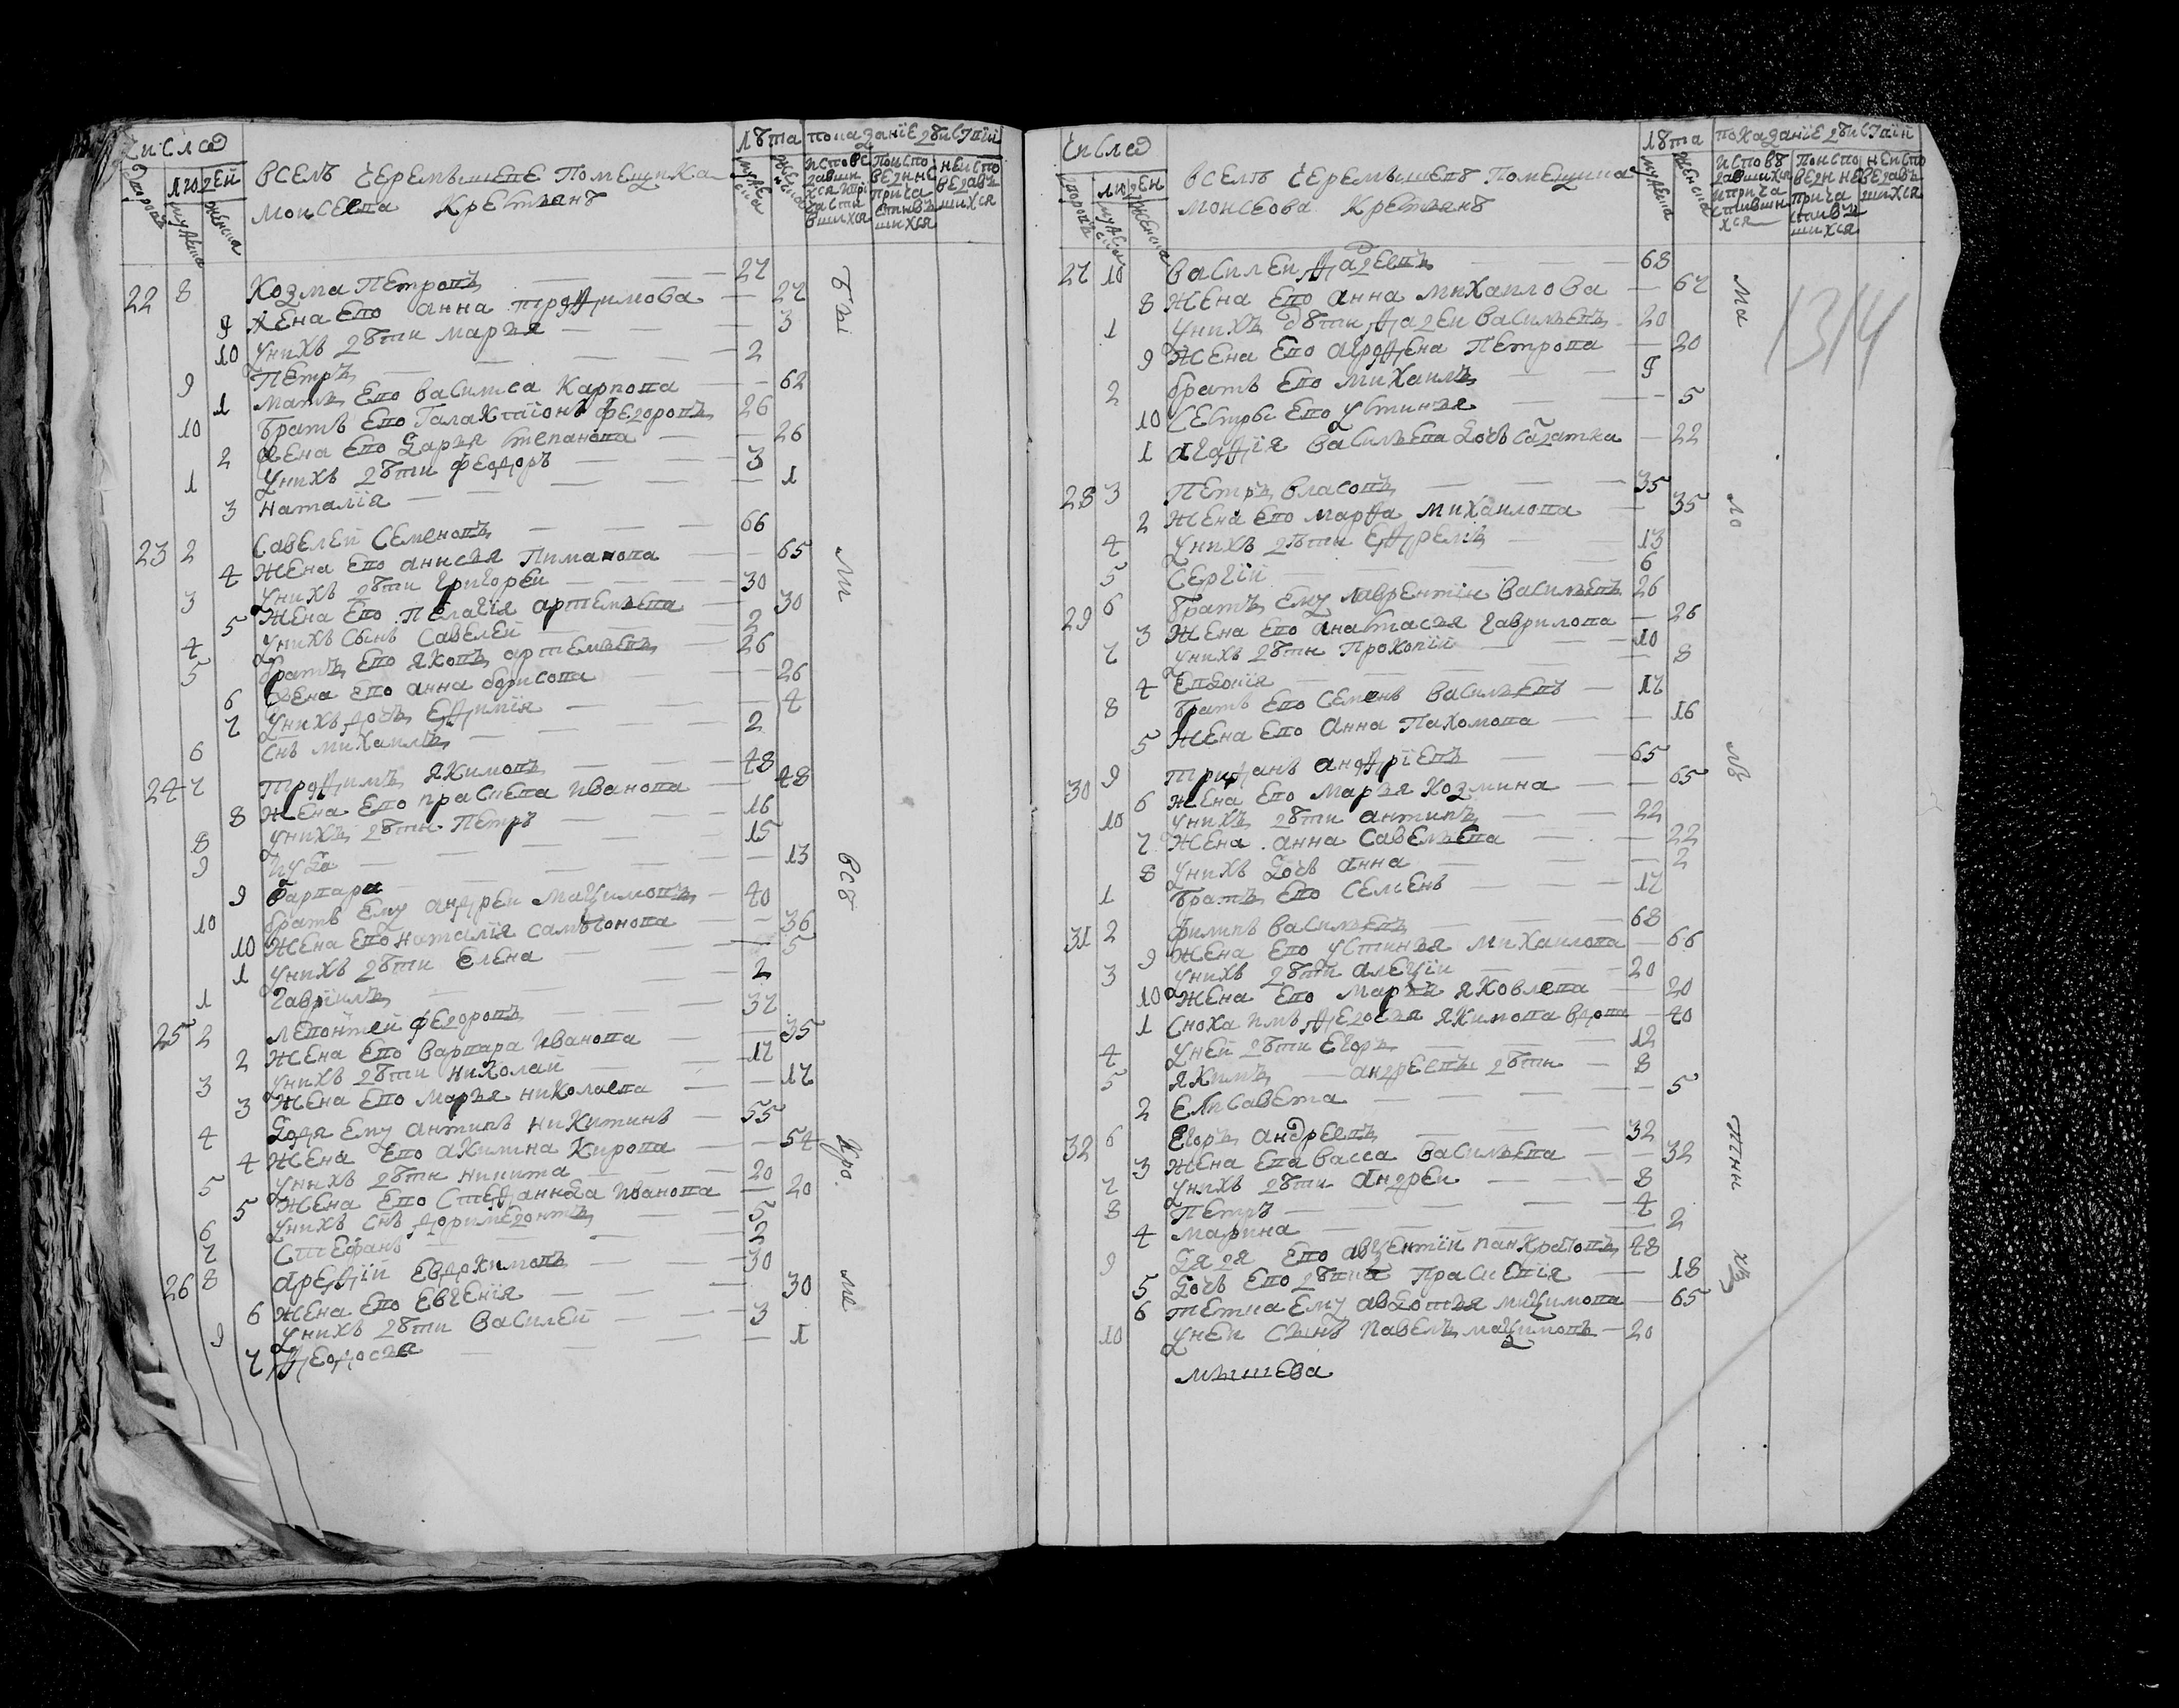 Числа
Дворовъ
людей
мужеска
женска
лѣта
мужеска
женска
показаніе дѣйствій
исповѣдавшихся и причастившихся
въ селѣ Черемышеве помещика
Моисеева Крестьянѣ
22 8 Козма Петровъ — 27
9 Жена ево анна трофимова — 27
10 у нихъ дѣти Марья — 3
9 Петръ — 2
1 мать ево василиса Карпова — 62
10 братъ ево Галактіонъ федоровъ 26
2 жена ево дарья степанова — 26
1 у нихъ дѣти феодоръ — 3
3 наталія — 1
23 2 Савелей Семеновъ — 66
4 Жена ево анисья Пиманова — 65
3 у нихъ дѣти григорей — 30
5 Жена ево Пелагія артемьева — 30
4 у нихъ сынъ Савелей — 2
5 братъ ево яковъ артемьевъ — 26
6 жена ево анна борисова — 26
7 у нихъ дочь ефимія — 4
6 снъ михаилъ — 2
24 7 трофимъ якимовъ — 48
8 Жена ево праскева иванова — 48
8 у нихъ дѣти Петръ — 16
9 — 15
9 варвара — 13
10 братъ ему андреи максимовъ — 40
10 Жена ево наталія самѣонова — 36
1 у нихъ дѣти елена — 5
1 гавріилъ — 2
25 2 левонтей федоровъ — 37
2 Жена ево варвара иванова — 35
3 у нихъ дѣти николай — 17
3 Жена ево марья николаева — 17
4 дядя ему антипъ никитинъ — 55
4 Жена ево акилина Кирова — 54
5 у нихъ дѣти никита — 20
5 Жена ево Стефанида иванова — 20
6 у нихъ снъ доримедонтъ — 5
7 Стефанъ — 2
26 8 арефій евдокимовъ — 30
6 Жена ево евгенія — 30
9 у нихъ дѣти василей — 3
7 феодосья — 1
Числа
людей
лѣта
показаніе дѣйствій
въ селѣ Черемышевѣ помещика
моисеова Крестьянѣ
1314
27 10 василеи фадеевъ — 68
8 Жена ево анна михаилова — 67
1 у нихъ дѣти фадеи васильевъ — 20
9 Жена ево агрофена Петрова — 20
2 братъ ево михаилъ — 9
10 сестры ево устинья — 5
1 агафія васильева дочь салдатка — 22
28 3 Петръ власовъ — 35
2 Жена ево марфа михаилова — 35
4 у нихъ дѣти ефремъ — 13
5 Сергій — 6
29 6 братъ ему лаврентіи васильевъ 26
3 Жена ево анастасья гаврилова — 26
7 у нихъ дѣти Прокопій — 10
4 евдокія — 8
8 братъ ево семенъ васильевъ — 17
5 Жена ево анна Пахомова — 16
30 9 трифанъ андріевъ — 65
6 Жена ево марья козмина — 65
10 у нихъ дѣти антипъ — 22
7 Жена анна савельева — 22
8 у нихъ дочь анна — 2
1 братъ ево семенъ — 17
31 2 филипъ васильевъ — 68
9 Жена ево устинья михаилова — 66
3 у нихъ дѣти алексіи — 20
10 Жена ево марья яковлева — 20
1 сноха имъ федосья якимова вдова — 40
4 у ней дѣти егоръ — 12
5 якимъ — андреевы дѣти — 8
2 елисавета — 5
32 6 егоръ андреевъ — 32
3 Жена ева васса васильева — 32
7 у нихъ дѣти андреи — 8
8 Петръ — 4
4 марина — 2
9 дядя ево авксентіи панкратовъ 48
5 дочь ево дѣвка праскевія — 18
6 тетка ему авдотья максимова — 65
10 у неи сынъ павелъ максимовъ — 20
мышева